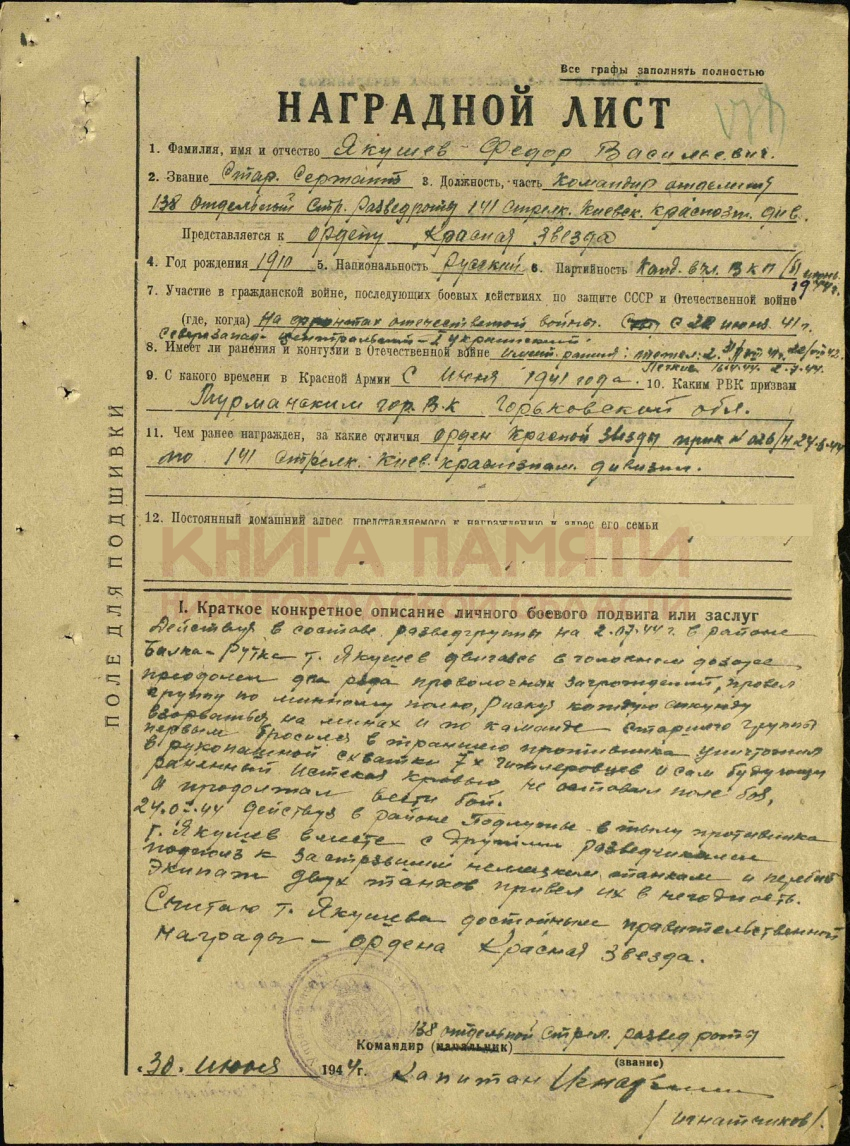 Все графы заполнять полностью
НАГРАДНОЙ ЛИСТ
1. Фамилия, имя и отчество Якушев Федор Васильевич.
2. Звание Стар. Сержант 3. Должность, часть Командир отделения
138 Отдельной Стр. Разведроты 141 Стрелк. Киевск. краснозн. див.
Представляется к ордену Красная Звезда
4. Год рождения 1910 5. Национальность Русский 6. Партийность Канд. в чл. ВКП/б/
1944 г.
7. Участие в гражданской войне, последующих боевых действиях по защите СССР и Отечественной войне
(где, когда) На фронтах отечественной войны. С 22 июня 41 г.
Северозапад - Центральский - 1 украинский
8. Имеет ли ранения и контузии в Отечественной войне имеет ранения: тяжел. 2.
Легкие 16.4.44 2.7.44.
9. С какого времени в Красной Армии С Июня 1941 года. 10. Каким РВК призван
гор. В-К Горьковской обл.
11. Чем ранее награжден, за какие отличия орден Красной Звезды прик № 026/н 24-5-44
по 141 Стрелк. Киев. краснознам. дивизии.
12. Постоянный домашний адрес представляемого к награждению и адрес его семьи
КНИГА ПАМЯТИ
НИЖЕГОРОДСКОЙ ОБЛАСТИ
I. Краткое конкретное описание личного боевого подвига или заслуг
Действуя в составе разведгруппы на 2.07.44 г. в районе
Балка-Рутка т. Якушев двигаясь в головном дозоре
преодолел два ряда проволочных заграждений, провел
группу по минному полю, рискуя каждую секунду
взорваться на минах и по команде старшего группы
первым бросился в траншею противника уничтожил
в рукопашной схватке 7х гитлеровцев и сам будучи
раненный Истекая кровью не оставил поле боя,
и продолжал вести бой.
24.07.44 действуя в районе Подлутье в тылу противника
т. Якушев вместе с другими разведчиками
подполз к застрявшим немецким танкам и перебив
экипаж двух танков привел их в негодность.
Считаю т. Якушева достойным правительственной
награды - ордена Красная Звезда.
138 отдельной стрел. развед роты
Командир (начальник)
(звание)
30. июля 1944 г. капитан
/Игнатчиков/.
ПОЛЕ ДЛЯ ПОДШИВКИ